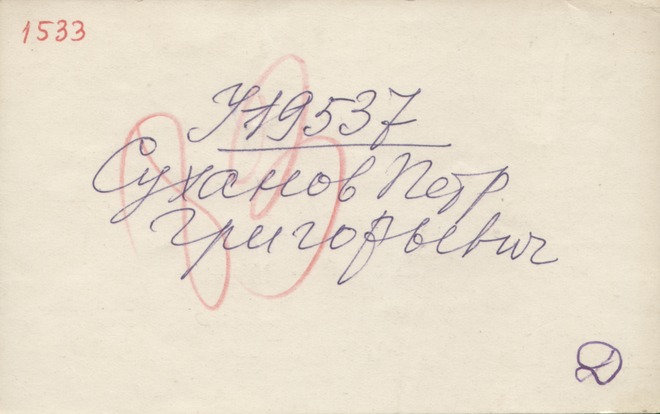 1533
У19537
Суханов Петр
Григорьевич
Д